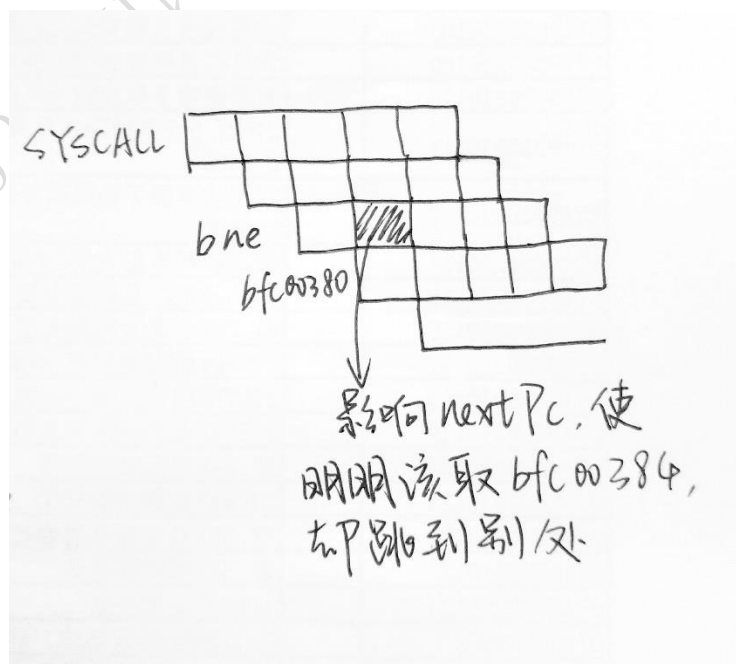 SYSCALL
bne
bfc00380
影响nextPc,使
明明该取bfc00384,
却跳到别处